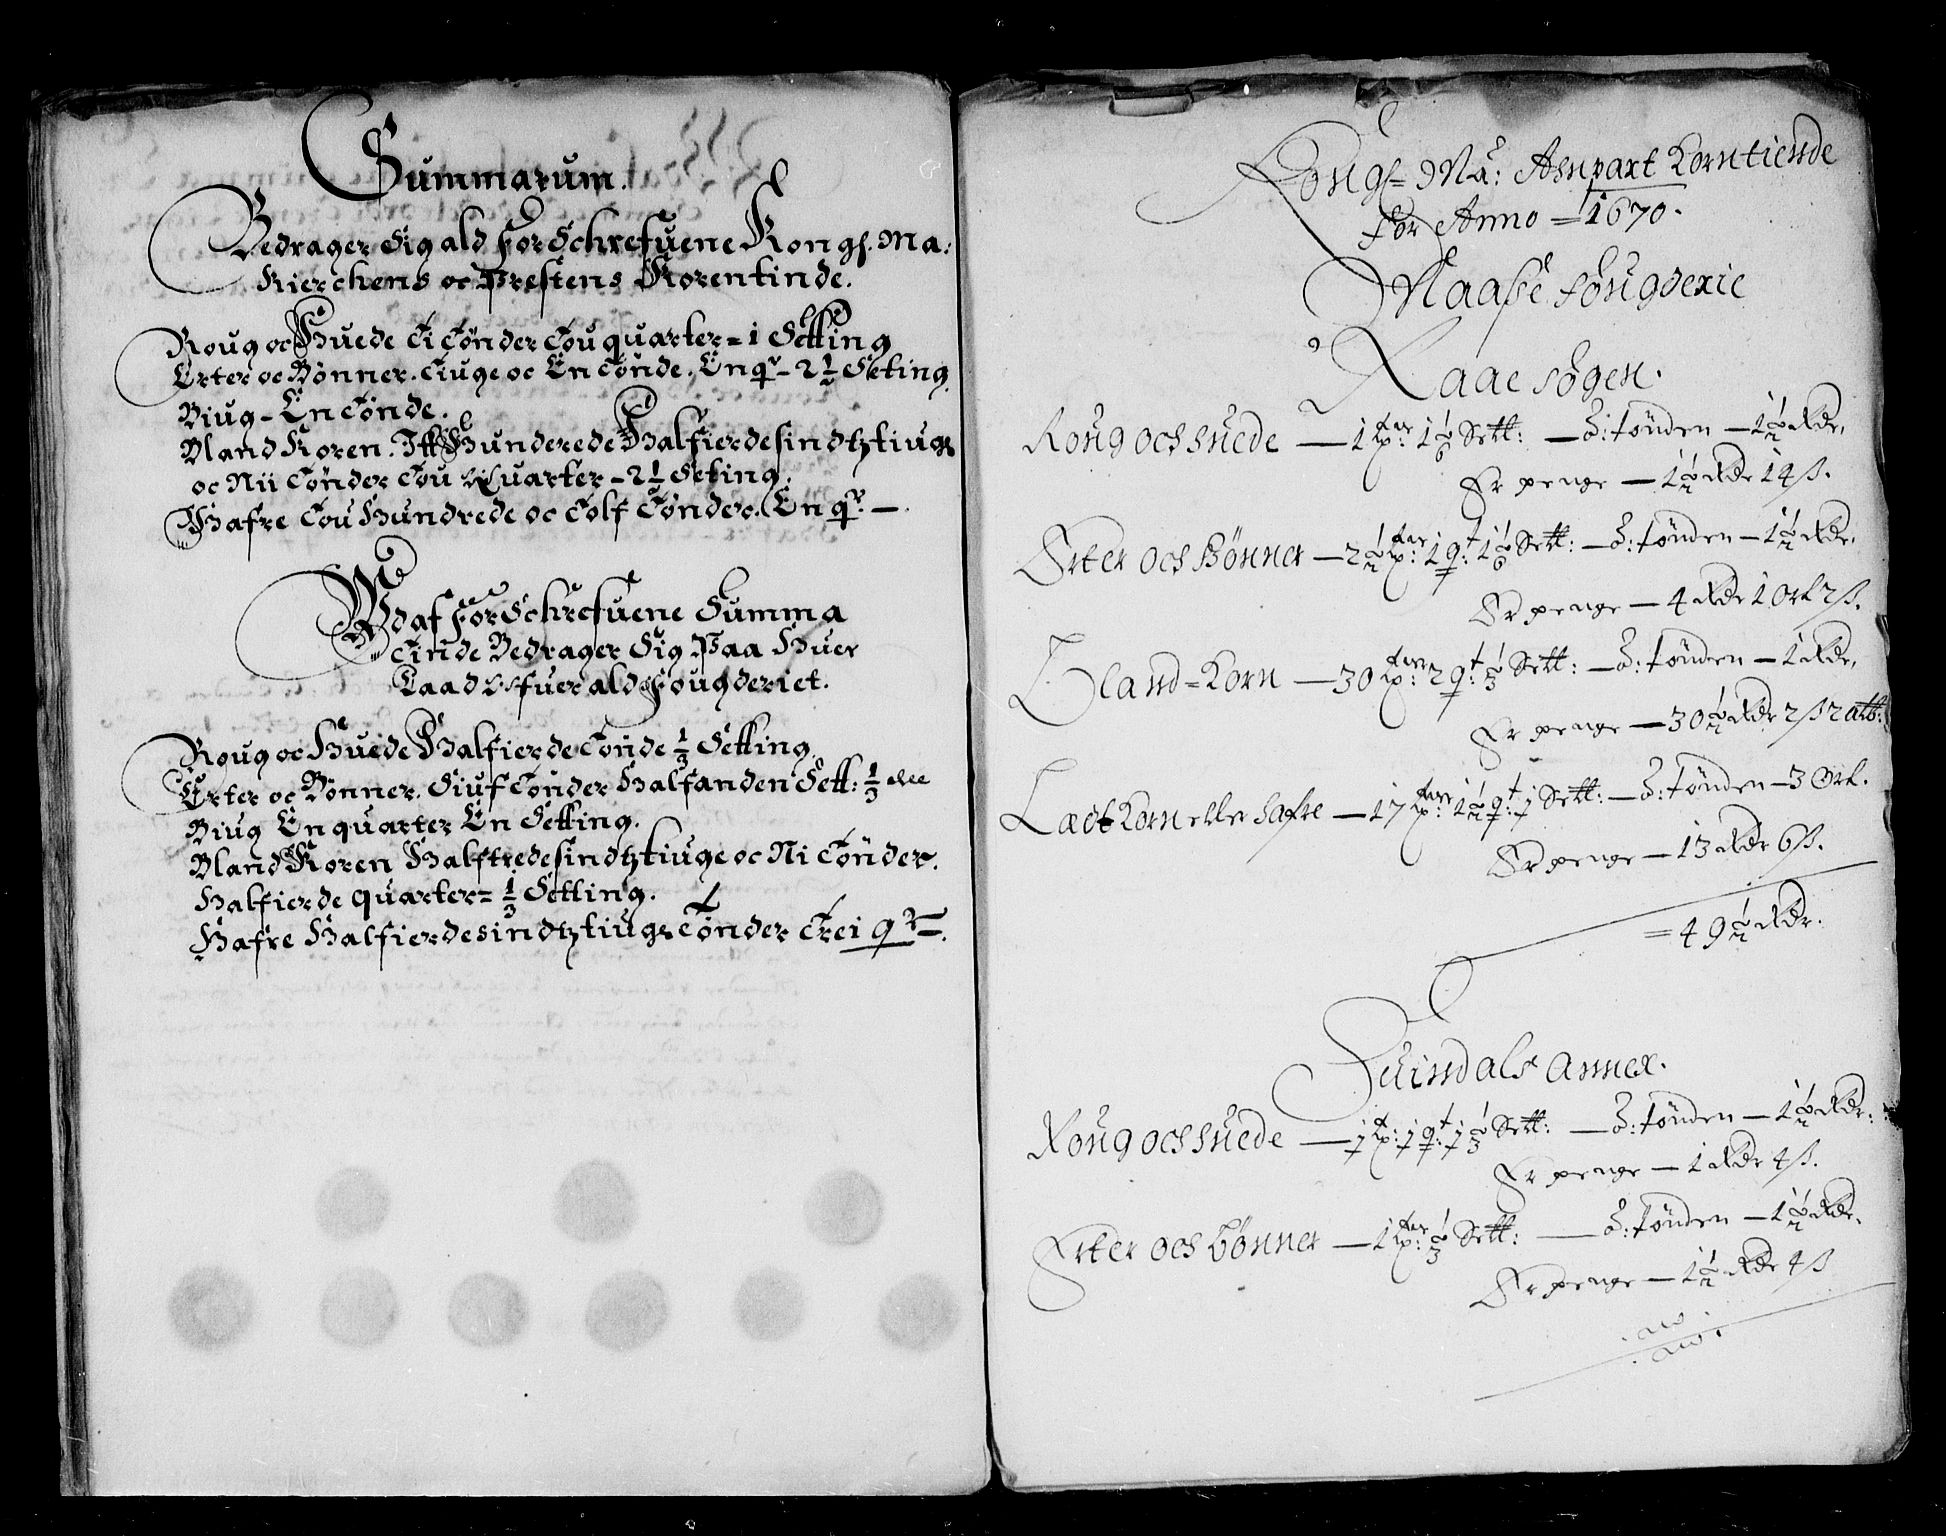 Summarum.
Bedrager Sig ald ForSchrefuene Kongs. Ma:
Kierchens oc Prestens Korentinde.
Roug oc Huede Ti Tønder Tou quarter = 1 Setting
Erter oc Bønner. Tiuge oc En Tønde. En qr – 2 1/2 Seting
Biug – En Tønde.
Bland Koren. Itt Hunderede Halfierdesindtztiuge
oc Nii Tønder Tou Quarter – 2 1/2 Seting.
Hafre Tou Hundrede oc Tolf Tønder. En qr. —
Vdaf ForSchrefuene Summa
Tinde Bedrager Sig Paa Huer
Laad Ofuer ald Fougderiet.
Roug oc Huede Halfierde Tønde 1/3 Setting
Erter oc Bønner. Siuf Tønder Halfanden Sett: 1/3 dee
Biug En quarter En Setting.
Bland Koren Halftredesindtztiuge oc Ni Tønder.
Halfierde quarter = 1/3 Setting.
Hafre Halfierdesindtztiuge Tønder Trei qr –.
Kongs= Ma: Anpart Korntiende
for Anno = 1670.
Raaßc fougderie
Raae sogen.
Roug och huede — 1 Tar: 1 1/6 Sett: — 3: tønden — 1 1/2 Rdr.
Er penge — 1 1/2 Rdr 14 ß.
Erter och Bønner — 2 1/2 Tar: 1 qt: 1 1/6 Sett: — 3: tønden — 1 1/2 Rdr.
Er penge — 4 Rdr 1 ort 2 ß.
Bland=Korn — 30 Tar: 2 qt: 1/3 Sett: — 3: tønden — 1 Rdr.
Er penge — 30 1/2 Rdr 2 ß 2 alb:
Ladt Korn eller hafre — 17 Tar: 1 1/2 qt: 1 Sett: — 3: tønden — 3 Ort.
Er penge — 13 Rdr 6 ß.
= 49 1/2 Rdr.
Suindals annex.
Roug och huede — 1/2 t: 1 qt: 1 1/3 Sett: — 3: tønden — 1 1/2 Rdr:
Er penge — 1 Rdr 4 ß.
Erter och Bønner — 1 Tar: 1/3 Sett: — 3: tønden — 1 1/2 Rdr.
Er penge — 1 1/2 Rdr 4 ß